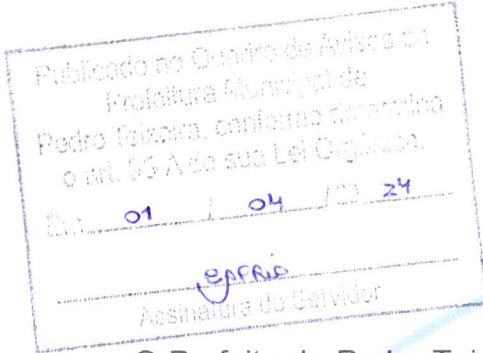 Publicado no Quadro de Avisos da
Prefeitura Municipal de
Pedro Teixeira, conforme determina
o art. 93 A de sua Lei Orgânica.
Em 01 / 04 / 24
Assinatura do Servidor
O Prefeito de Pedro Tei